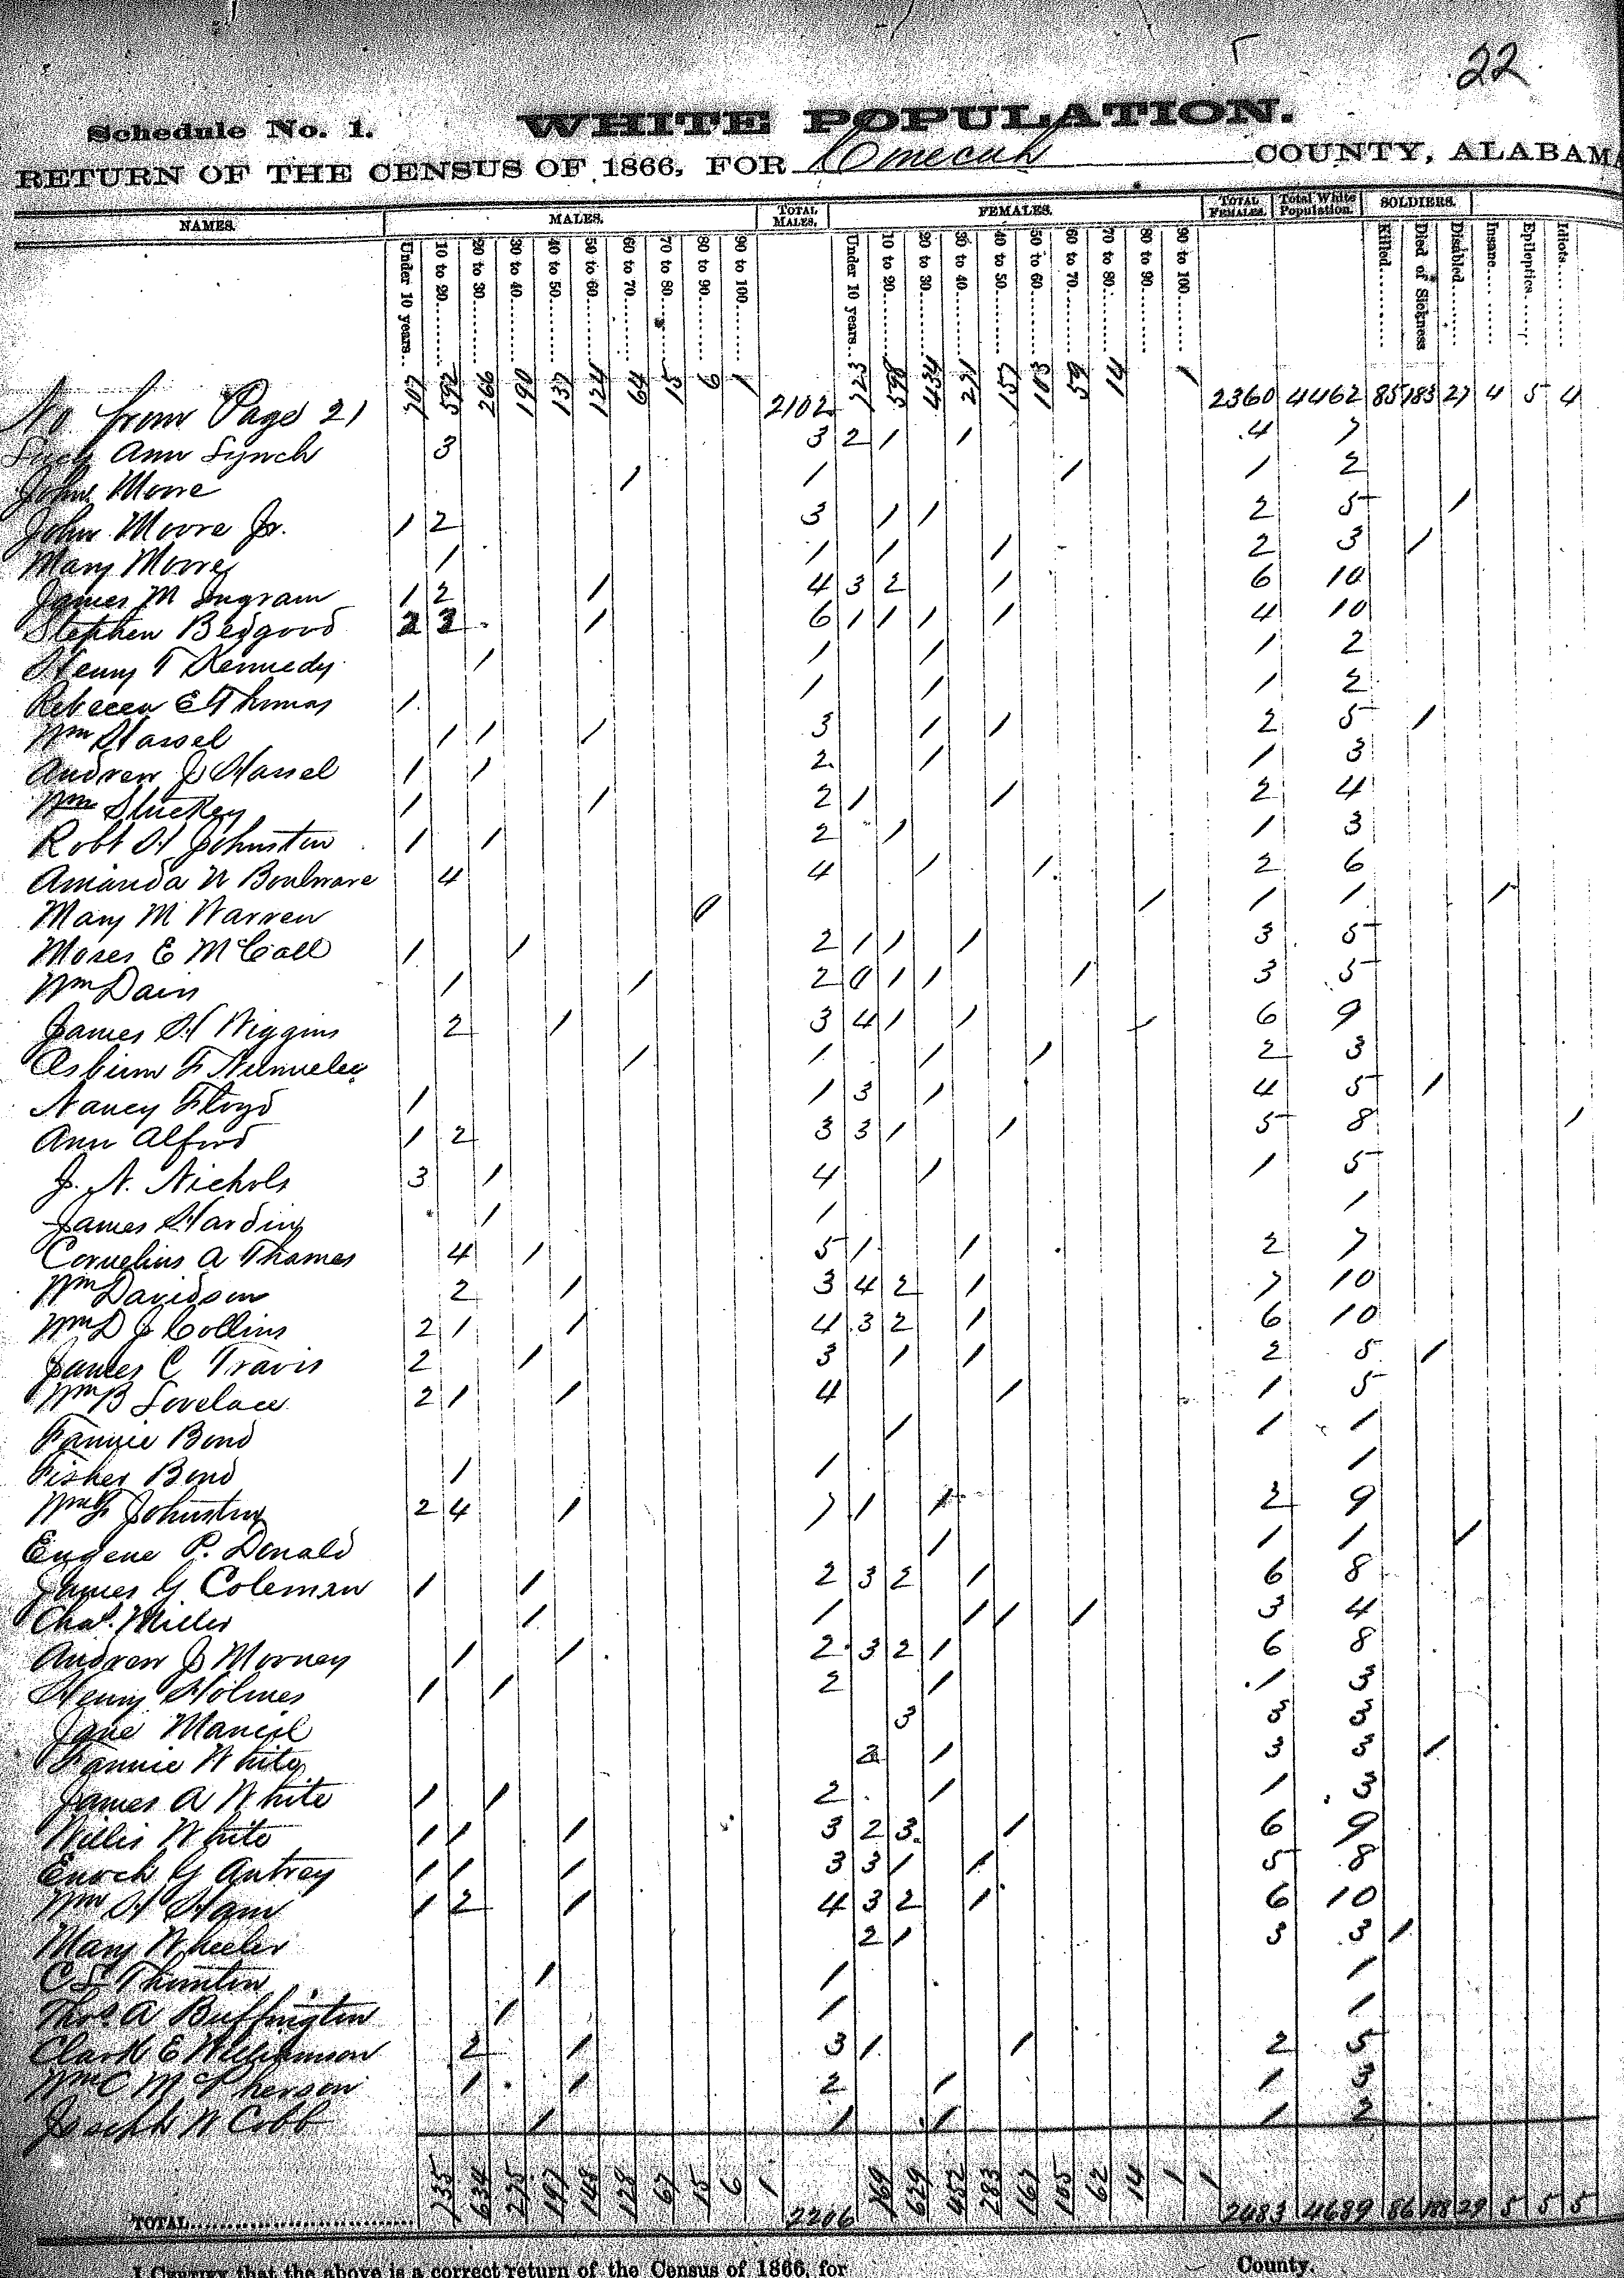 22
Schedule No. 1. WHITE POPULATION.
RETURN OF THE CENSUS OF 1866, FOR Conecuh COUNTY, ALABAMA
NAMES. MALES. TOTAL MALES. FEMALES. TOTAL FEMALES. Total White Population. SOLDIERS.
Under 10 years 10 to 20 20 to 30 30 to 40 40 to 50 50 to 60 60 to 70 70 to 80 80 to 90 90 to 100 Under 10 years 10 to 20 20 to 30 30 to 40 40 to 50 50 to 60 60 to 70 70 to 80 80 to 90 90 to 100 Killed Died of Sickness Disabled Insane Epileptics Idiots
No from Page 21 707 592 266 190 137 124 64 15 6 1 2102 723 598 434 271 157 103 59 14 1 2360 4462 85 183 27 4 5 4
Ann Lynch 3 3 2 1 1 4 7
John Moore 1 1 1 1 2
John Moore Jr. 1 2 3 1 1 2 5 1
Mary Moore 1 1 1 1 2 3 1
James M Ingram 1 2 1 4 3 2 1 6 10
Stephen Bedgood 2 3 1 6 1 1 1 1 4 10
Henry T Kennedy 1 1 1 1 2
Rebecca E Thomas 1 1 1 1 2
Wm Hassel 1 1 1 3 1 1 2 5 1
Andrew J Hassel 1 1 2 1 1 3
Wm Stuckey 1 1 2 1 1 2 4
Robt H Johnston 1 1 2 1 1 3
Amanda N Boulware 4 4 1 1 2 6
Mary M Warren 0 1 1 1 1
Moses E McCall 1 1 2 1 1 1 3 5
Wm Dain 1 1 2 0 1 1 1 3 5
James H Wiggins 2 1 3 4 1 1 6 9
F Nunnelee 1 1 1 1 2 3
Nancy Floyd 1 1 3 1 4 5 1
Ann Alford 1 2 3 3 1 1 5 8 1
J. N. Nichols 3 1 4 1 1 5
James Harding 1 1 1
Cornelius A Thames 4 1 5 1 1 2 7
Wm Davidson 2 1 3 4 2 1 7 10
Wm D J Collins 2 1 1 4 3 2 1 6 10
James C Travis 2 1 3 1 1 2 5 1
Wm B Lovelace 2 1 1 4 1 1 5
Fannie Bond 1 1 1
Fisher Bond 1 1 1
Wm F Johnston 2 4 1 7 1 1 2 9
Eugene P. Donald 1 1 1 1
James G Coleman 1 1 2 3 2 1 6 8
Chas. Miller 1 1 1 1 1 3 4
Andrew J Morney 1 1 2 3 2 1 6 8
Henry Holmes 1 1 2 1 1 3
Jane Mancil 3 3 3
Fannie White 2 1 3 3 1
James A White 1 1 2 1 1 3
Willis White 1 1 1 3 2 3 1 6 9
Enoch G Autrey 1 1 1 3 3 1 1 5 8
Wm H Ham 1 2 1 4 3 2 1 6 10
Mary Wheeler 2 1 3 3 1
C S Thornton 1 1 1
Thos A Buffington 1 1 1
Clark E Williamson 2 1 3 1 1 2 5
Wm C McPherson 1 1 2 1 1 3
Joseph W Cobb 1 1 1 1 2
TOTAL 735 634 275 197 148 128 67 15 6 1 2206 769 629 452 283 167 105 62 14 1 1 2483 4689 86 188 29 5 5 5
I CERTIFY that the above is a correct return of the Census of 1866, for County.